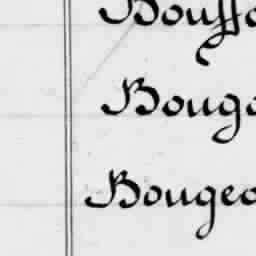 Bouff
Boug
Bougeo